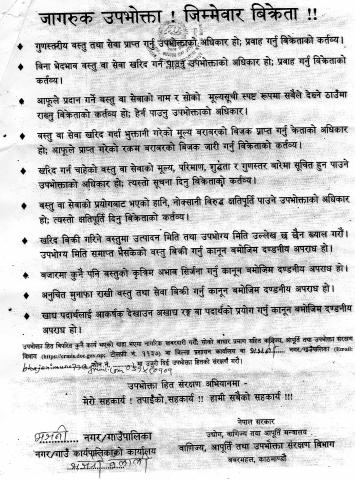 जागरुक उपभोक्ता ! जिम्मेवार बिक्रेता !!
गुणस्तरीय वस्तु तथा सेवा प्राप्त गर्नु उपभोक्ताको अधिकार हो; प्रवाह गर्नु बिक्रेताको कर्तव्य।
बिना भेदभाव वस्तु वा सेवा खरिद गर्न पाउनु उपभोक्ताको अधिकार हो; प्रवाह गर्नु बिक्रेताको
कर्तव्य।
आफूले प्रदान गर्ने वस्तु वा सेवाको नाम र सोको मूल्यसूची स्पष्ट रूपमा सबैले देख्ने ठाउँमा
राख्नु बिक्रेताको कर्तव्य हो; हेर्न पाउनु उपभोक्ताको अधिकार।
वस्तु वा सेवा खरिद गर्दा भुक्तानी गरेको मूल्य बराबरको बिजक प्राप्त गर्नु क्रेताको अधिकार
हो; आफूले प्राप्त गरेको रकम बराबरको बिजक जारी गर्नु बिक्रेताको कर्तव्य।
खरिद गर्न चाहेको वस्तु वा सेवाको मूल्य, परिमाण, शुद्धता र गुणस्तर बारेमा सूचित हुन पाउने
उपभोक्ताको अधिकार हो; त्यस्तो सूचना दिनु बिक्रेताको कर्तव्य।
वस्तु वा सेवाको प्रयोगबाट भएको हानि, नोक्सानी विरुद्ध क्षतिपूर्ति पाउने उपभोक्ताको अधिकार
हो; त्यस्तो क्षतिपूर्ति दिनु बिक्रेताको कर्तव्य।
खरिद बिक्री गरिने वस्तुमा उत्पादन मिति तथा उपभोग्य मिति उल्लेख छ छैन ख्याल गरौं।
उपभोग्य मिति समाप्त भैसकेको वस्तु बिक्री गर्नु कानून बमोजिम दण्डनीय अपराध हो।
बजारमा कुनै पनि वस्तुको कृत्रिम अभाव सिर्जना गर्नु कानून बमोजिम दण्डनीय अपराध हो।
अनुचित मुनाफा राखी वस्तु तथा सेवा बिक्री गर्नु कानून बमोजिम दण्डनीय अपराध हो।
खाद्य पदार्थलाई आकर्षक देखाउन अखाद्य रङ्ग वा पदार्थको प्रयोग गर्नु कानून बमोजिम दण्डनीय
अपराध हो।
उपभोक्ता हित विपरित कुनै कार्य भएको थाहा पाएमा नागरिक खबरदारी गरौं। सोको आधार प्रमाण सहित वाणिज्य, आपूर्ति तथा उपभोक्ता संरक्षण
विभाग वा जिल्ला प्रशासन कार्यालय वा नगर/गाउँपालिका (Email:
उपभोक्ता हित संरक्षण अभियानमा -
मेरो सहकार्य ! तपाईंको सहकार्य !! हामी सबैको सहकार्य !!!
नगर/गाउँपालिका
नगर/गाउँ कार्यपालिकाको कार्यालय
नेपाल सरकार
उद्योग, वाणिज्य तथा आपूर्ति मन्त्रालय
वाणिज्य, आपूर्ति तथा उपभोक्ता संरक्षण विभाग
बबरमहल, काठमाण्डौ